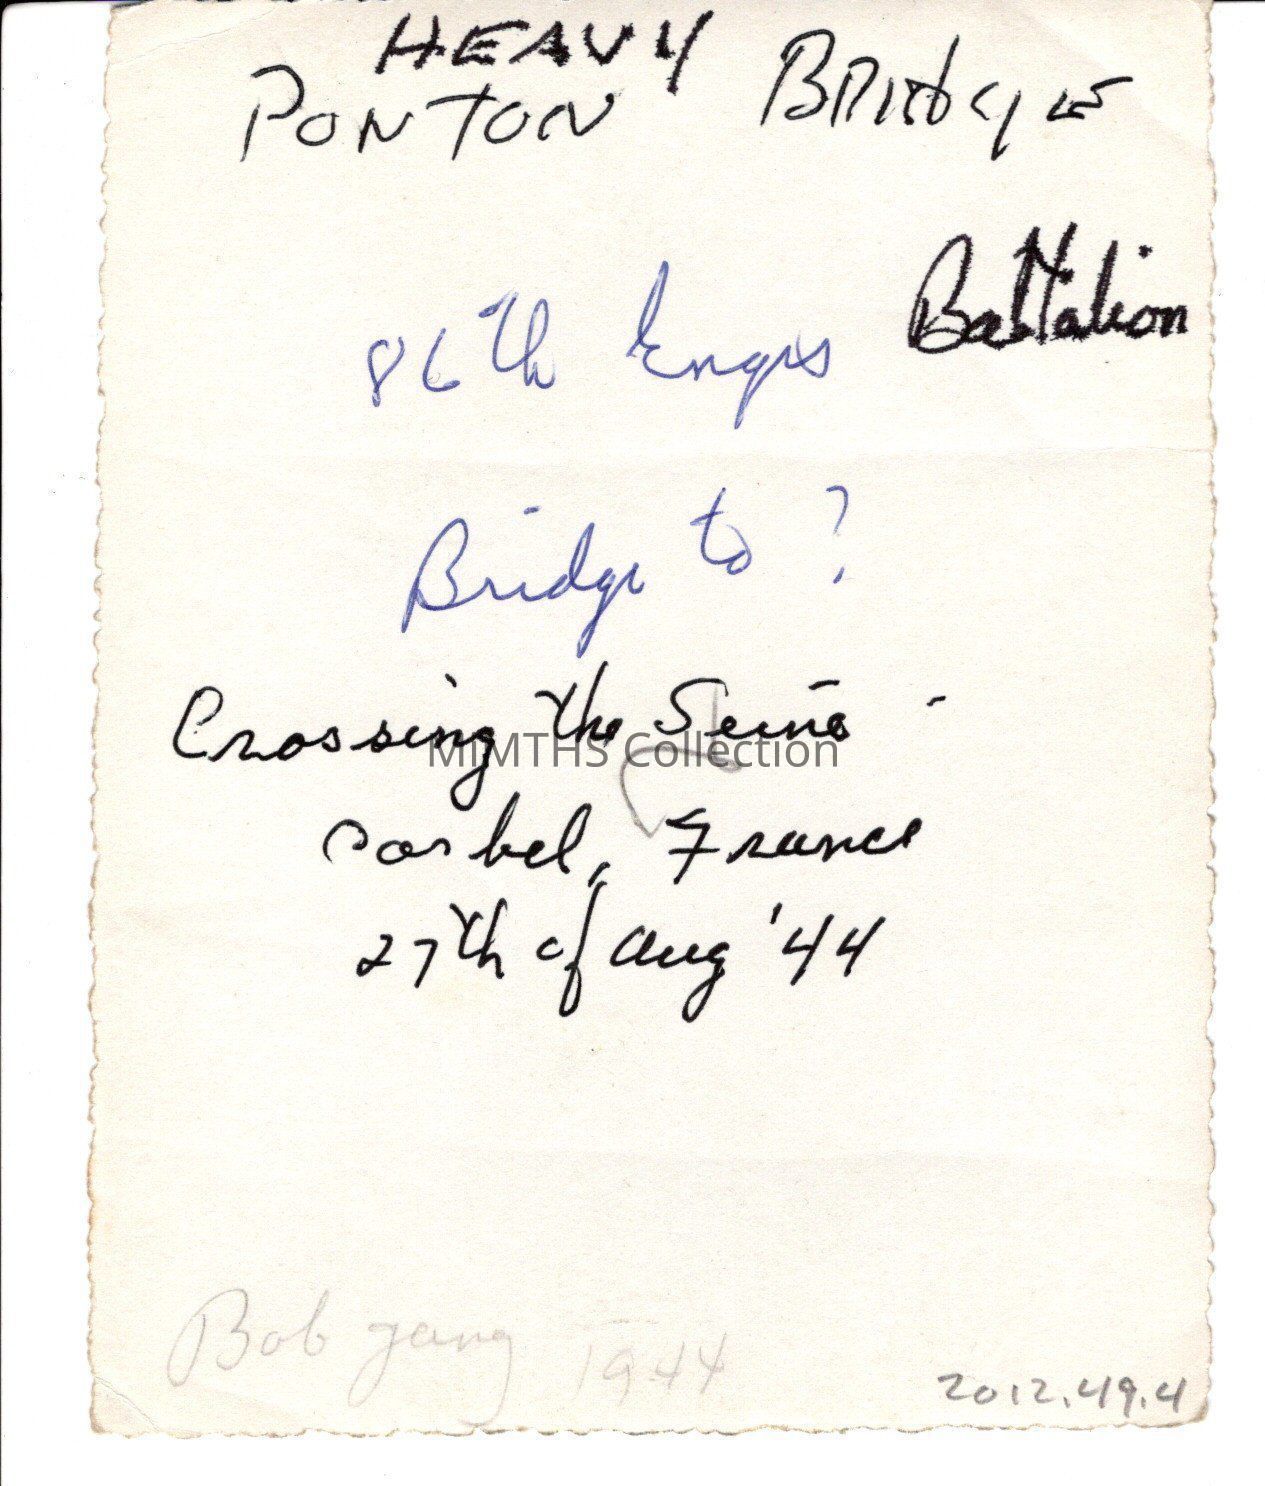 HEAVY
PONTON BRIDGE
Battalion
86th Engrs
Bridge to ?
Crossing the Seine -
MIMTHS Collection
Corbel, France
27th of Aug '44
Bob Yang 1944
2012.49.4